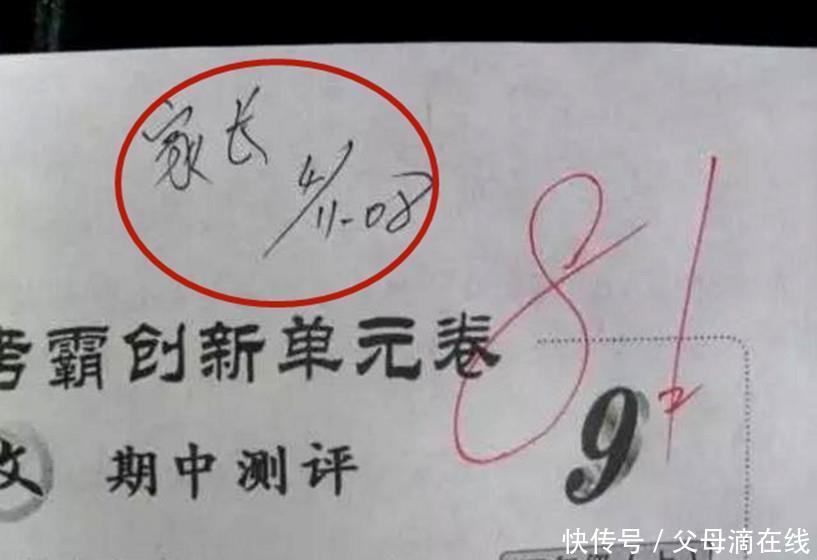 家长
4/11-08
81
考霸创新单元卷
文 期中测评 9
快传号 / 父母滴在线